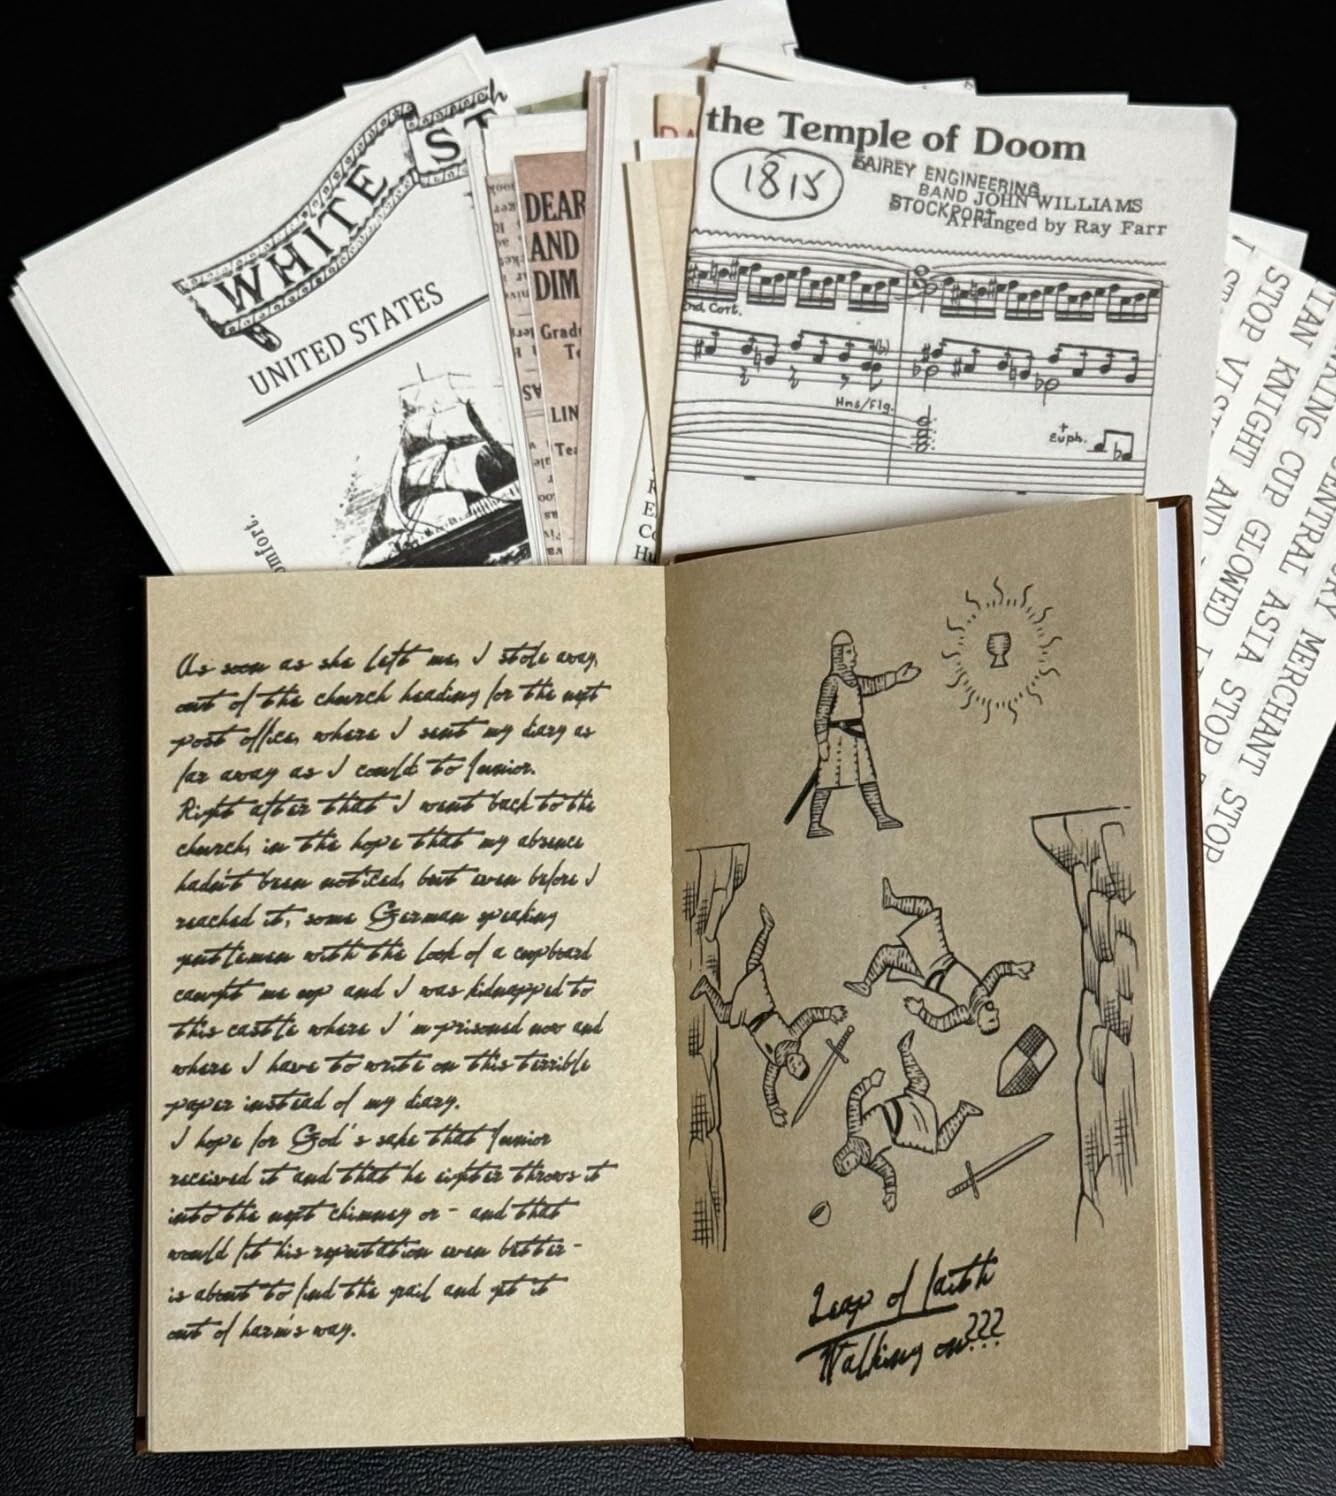 WHITE ST
UNITED STATES
omfort.
DEAR
AND
DIM
Grad
LIN
Tea
the Temple of Doom
1815
FAIREY ENGINEERING
BAND JOHN WILLIAMS
STOCKPORT
Arranged by Ray Farr
2nd Cort.
Hns/Flg.
+
Euph.
MERCHANT STOP
CENTRAL ASIA STOP
CUP GLOWED
KNIGHT AND
STOP
As soon as she left me, I stole away,
out of the church heading for the next
post office, where I sent my diary as
far away as I could to Junior.
Right after that I went back to the
church, in the hope that my absence
hadn't been noticed, but even before I
reached it, some German speaking
gentlemen with the look of a cupboard
caught me up and I was kidnapped to
this castle where I'm prisoned now and
where I have to write on this terrible
paper instead of my diary.
I hope for God's sake that Junior
received it and that he eighter throws it
into the next chimney or - and that
would fit his reputation even better -
is about to find the grail and get it
out of harm's way.
Leap of faith
Walking on???